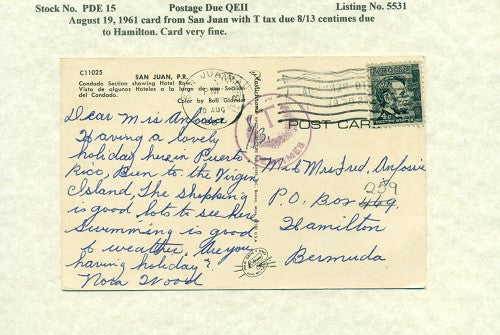 Stock No. PDE 15 Postage Due QEII Listing No. 5531
August 19, 1961 card from San Juan with T tax due 8/13 centimes due
to Hamilton. Card very fine.
C11025
SAN JUAN, P.R.
Condado Section showing Hotel Row.
Vista de algunos Hoteles a lo largo de una Sección
del Condado.
Color by
POST CARD
T
CENTIMES
4¢
Dear Mrs
Having a lovely
holiday here in Puerto
Rico, Been to the Virgin
Island, The shopping
is good lots to see here
Swimming is good
& weather. Are you
having holiday?
Nora Wood
Mr & Mrs Fred
259
P.O. Box 469,
Hamilton
Bermuda